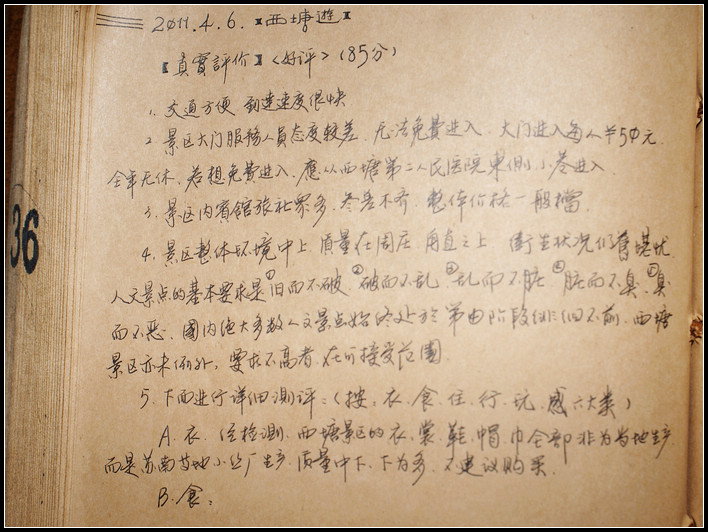 2011.4.6.【西塘遊】
【真實評价】<好评>(85分)
1. 交通方便 到達速度很快
2. 景区大门服務人員态度较差. 无法免費进入. 大门进入每人¥50元.
全年无休. 若想免費进入. 應从西塘第二人民医院東側小巷进入.
3. 景区内賓館旅社眾多. 参差不齐. 整体价格一般檔.
4. 景区整体环境中上. 质量在周庄 甪直之上 衛生状况仍舊堪忧.
人文景点的基本要求是①旧而不破. ②破而不乱. ③乱而不脏 ④脏而不臭. ⑤臭
而不恶. 國内绝大多数人文景点始终处於第 阶段徘徊不前. 西塘
景区亦未例外. 要求不高者. 在可接受范围.
5. 下面进行详细測评:(按. 衣. 食. 住. 行. 玩. 感 六大类)
A. 衣. 经检測. 西塘景区的衣. 裳. 鞋. 帽. 巾全部非为当地生产.
而是苏南当地小丝厂生产. 质量中下. 下为多. 不建议购买.
B. 食:
36